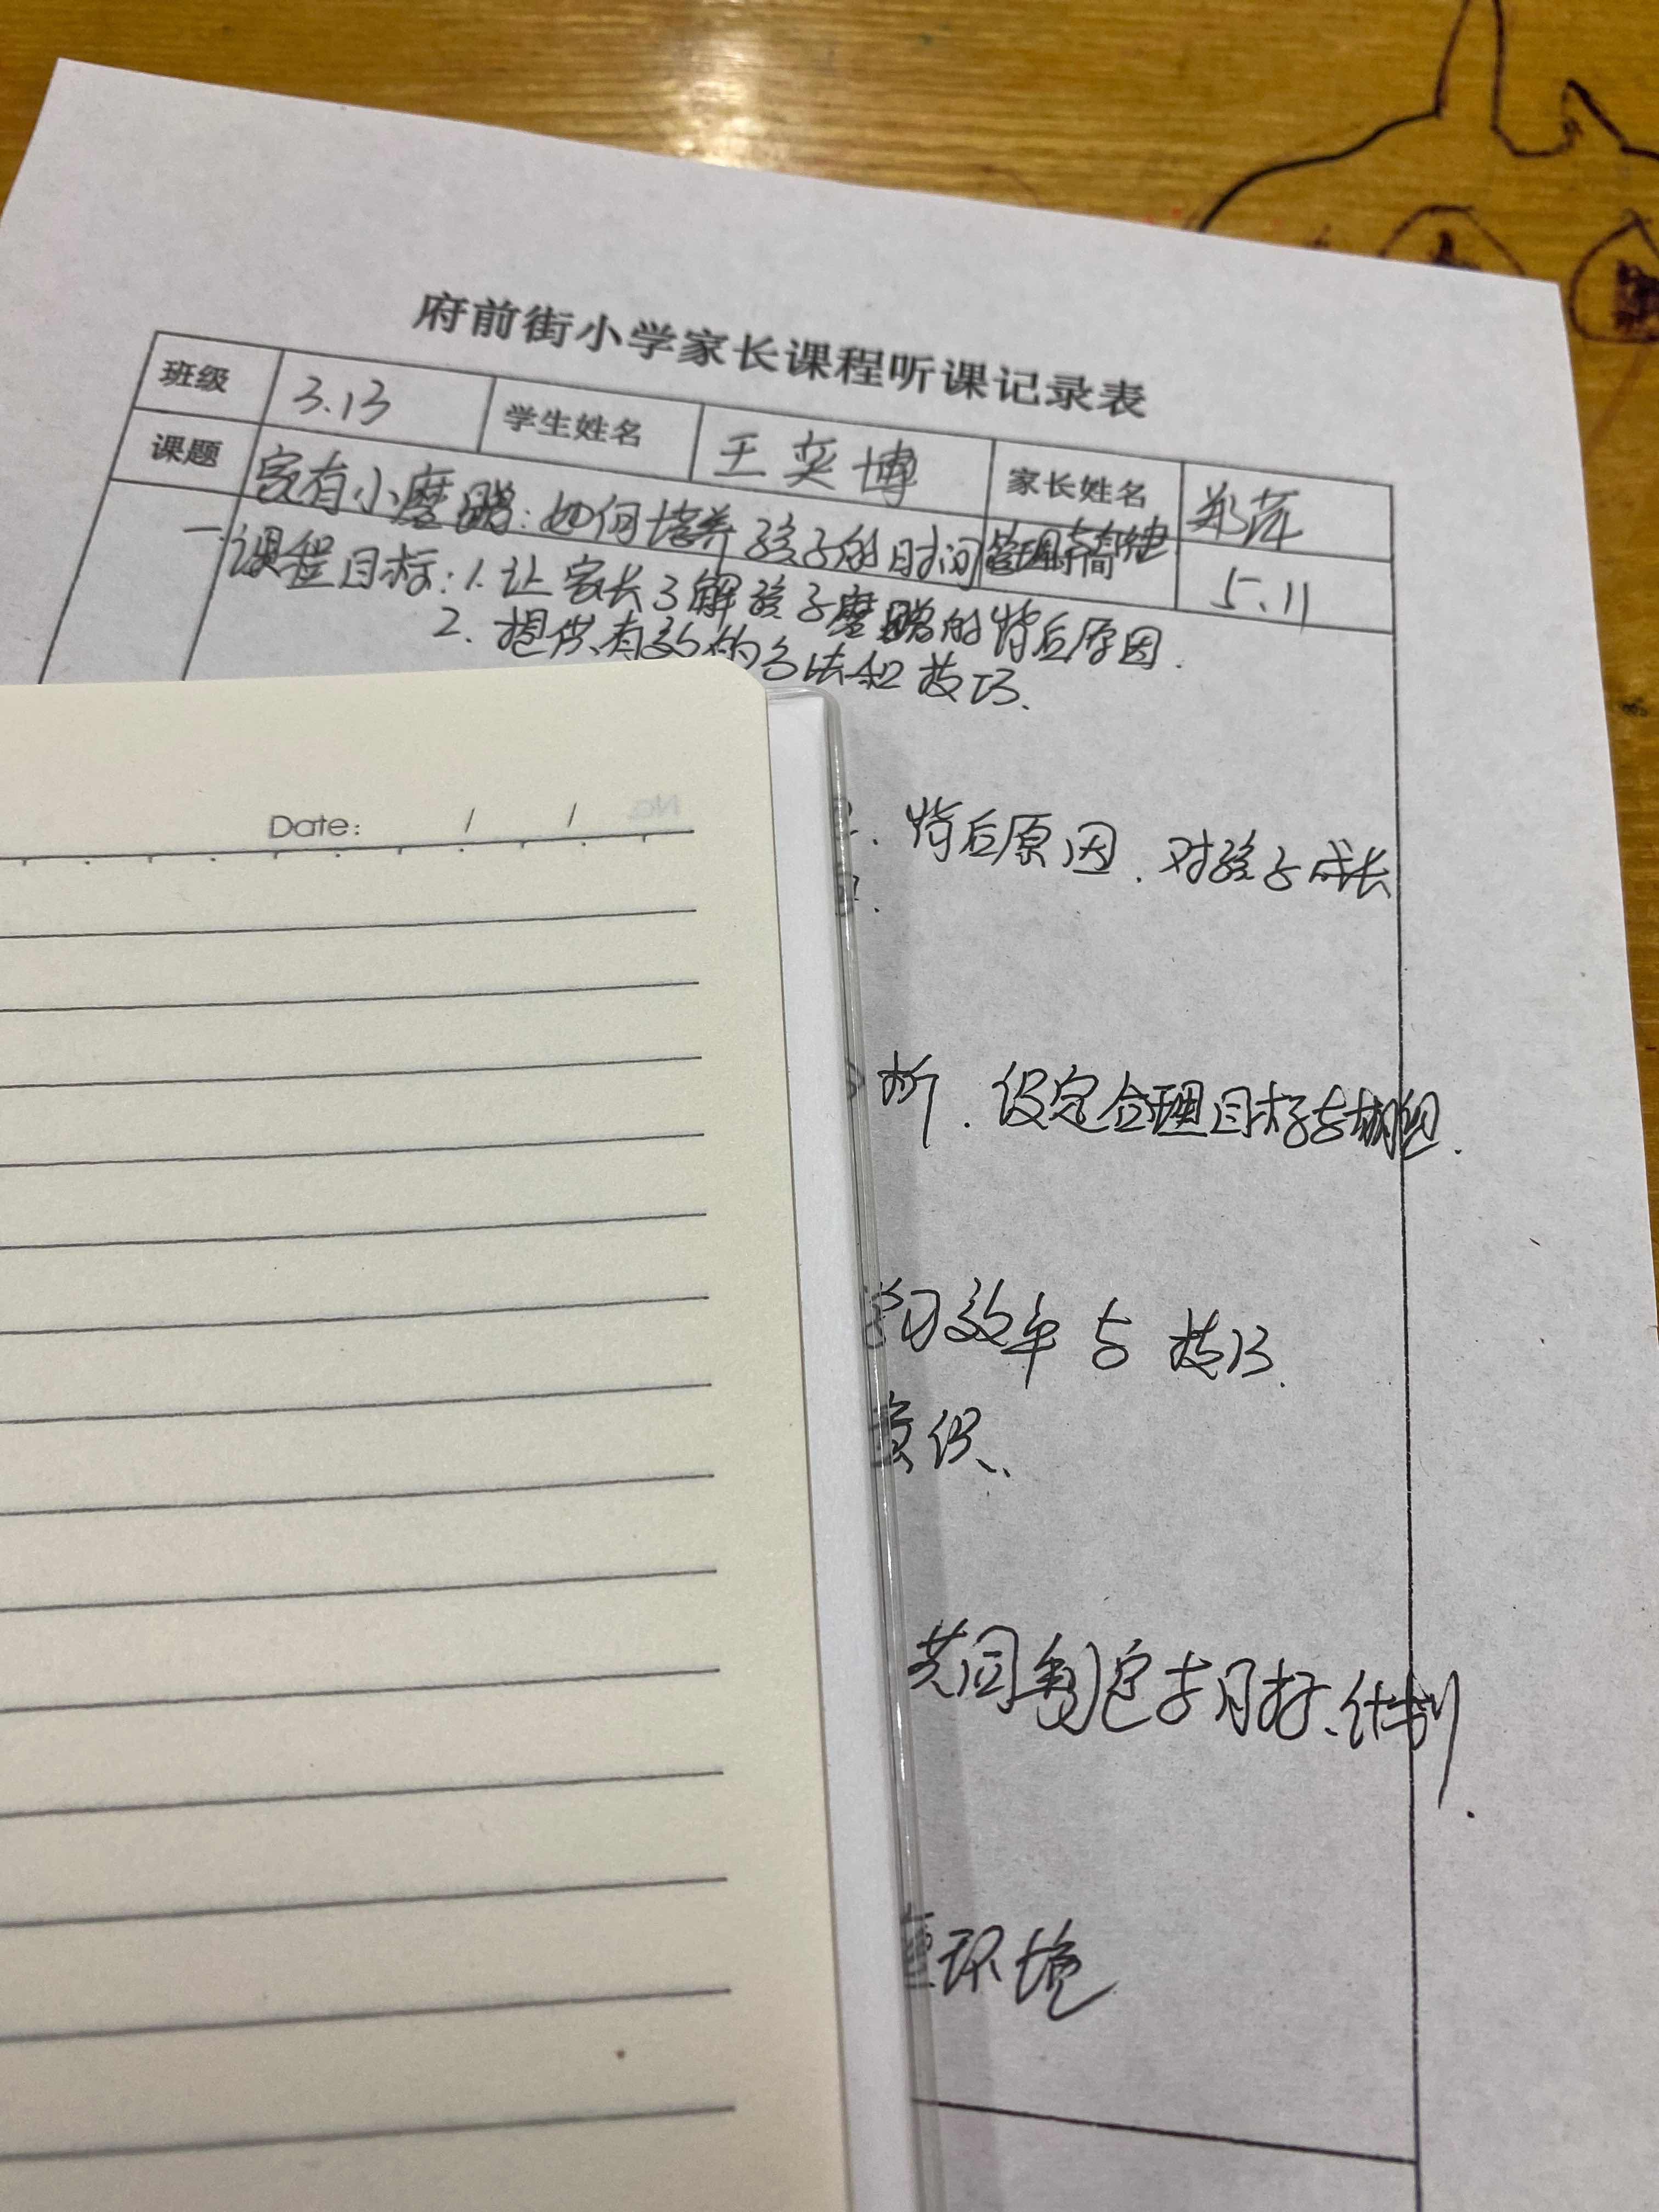 府前街小学家长课程听课记录表
班级 3.13 学生姓名 王奕博 家长姓名 郑萍
课题 家有小磨蹭:如何培养孩子的时间管理与 时间 5.11
一.课程目标:1.让家长了解孩子磨蹭的背后原因.
2.提供有效的方法和技巧.
背后原因.对孩子成长
析.设定合理目标与
学习效率与技巧.
共同制定与目标、计划.
环境
Date: / /
No.